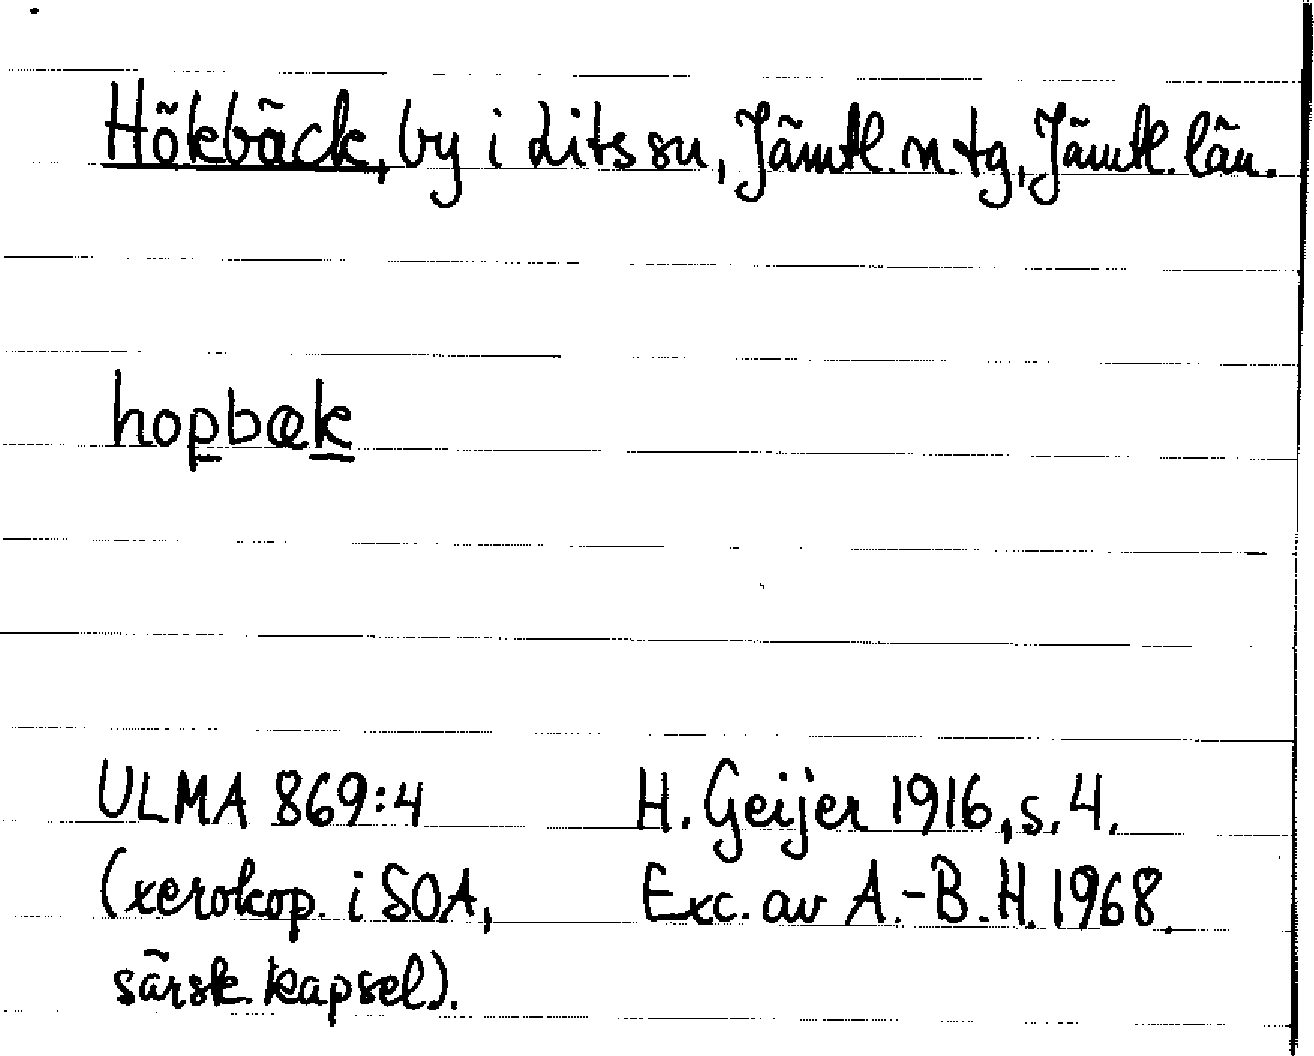 Hökbäck, by i Lits sn, Jämtl. n. tg, Jämtl. län.
hopbæk
ULMA 869:4 H. Geijer 1916, s. 4.
(xerokop. i SOA, Exc. av A.-B. H. 1968.
särsk. kapsel).